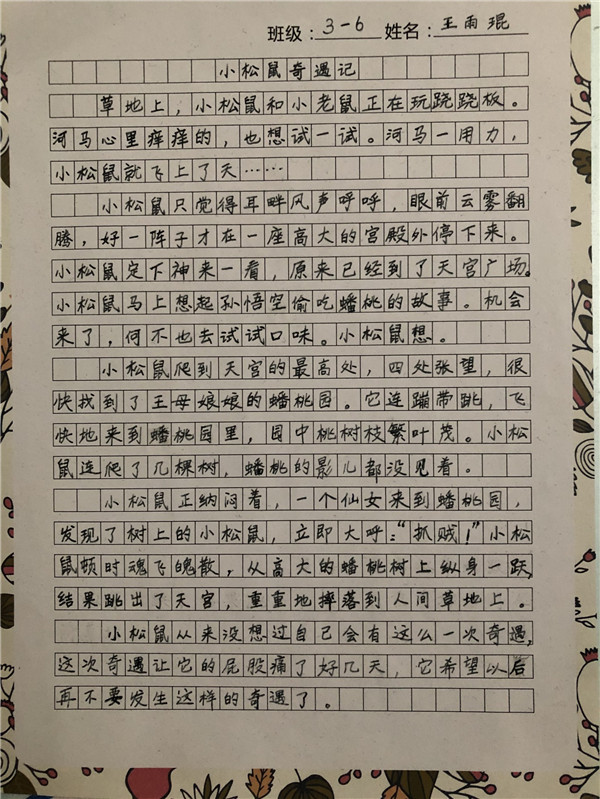 班级：3-6 姓名：王雨琨
小松鼠奇遇记
草地上，小松鼠和小老鼠正在玩跷跷板。
河马心里痒痒的，也想试一试。河马一用力，
小松鼠就飞上了天……
小松鼠只觉得耳畔风声呼呼，眼前云雾翻
腾，好一阵子才在一座高大的宫殿外停下来。
小松鼠定下神来一看，原来已经到了天宫广场。
小松鼠马上想起孙悟空偷吃蟠桃的故事。机会
来了，何不也去试试口味。小松鼠想。
小松鼠爬到天宫的最高处，四处张望，很
快找到了王母娘娘的蟠桃园。它连蹦带跳，飞
快地来到蟠桃园里，园中桃树枝繁叶茂。小松
鼠连爬了几棵树，蟠桃的影儿都没见着。
小松鼠正纳闷着，一个仙女来到蟠桃园，
发现了树上的小松鼠，立即大呼：“抓贼！”小松
鼠顿时魂飞魄散，从高大的蟠桃树上纵身一跃，
结果跳出了天宫，重重地摔落到人间草地上。
小松鼠从来没想过自己会有这么一次奇遇，
这次奇遇让它的屁股痛了好几天，它希望以后
再不要发生这样的奇遇了。